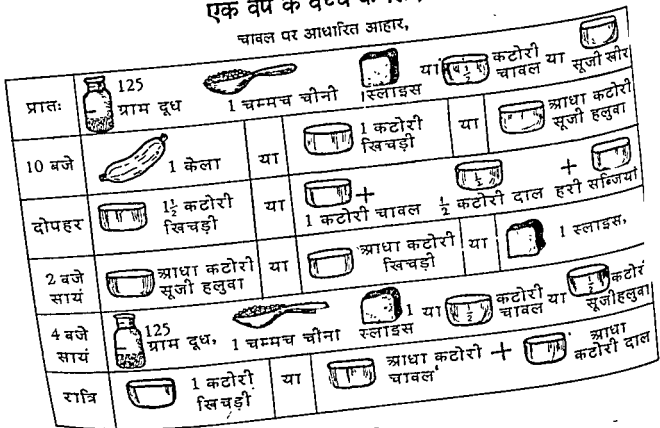 एक वर्ष के बच्चे के लिए
चावल पर आधारित आहार,
प्रातः 125 ग्राम दूध 1 चम्मच चीनी 1स्लाइस या 1/2 कटोरी चावल या सूजी खीर
10 बजे 1 केला या 1 कटोरी खिचड़ी या आधा कटोरी सूजी हलुवा
दोपहर 1½ कटोरी खिचड़ी या 1 कटोरी चावल + ½ कटोरी दाल + हरी सब्जियां
2 बजे सायं आधा कटोरी सूजी हलुवा या आधा कटोरी खिचड़ी या 1 स्लाइस,
4 बजे सायं 125 ग्राम दूध, 1 चम्मच चीनी 1 स्लाइस या ½ कटोरी चावल या ½ कटोरी सूजी हलुवा
रात्रि 1 कटोरी खिचड़ी या आधा कटोरी चावल + आधा कटोरी दाल